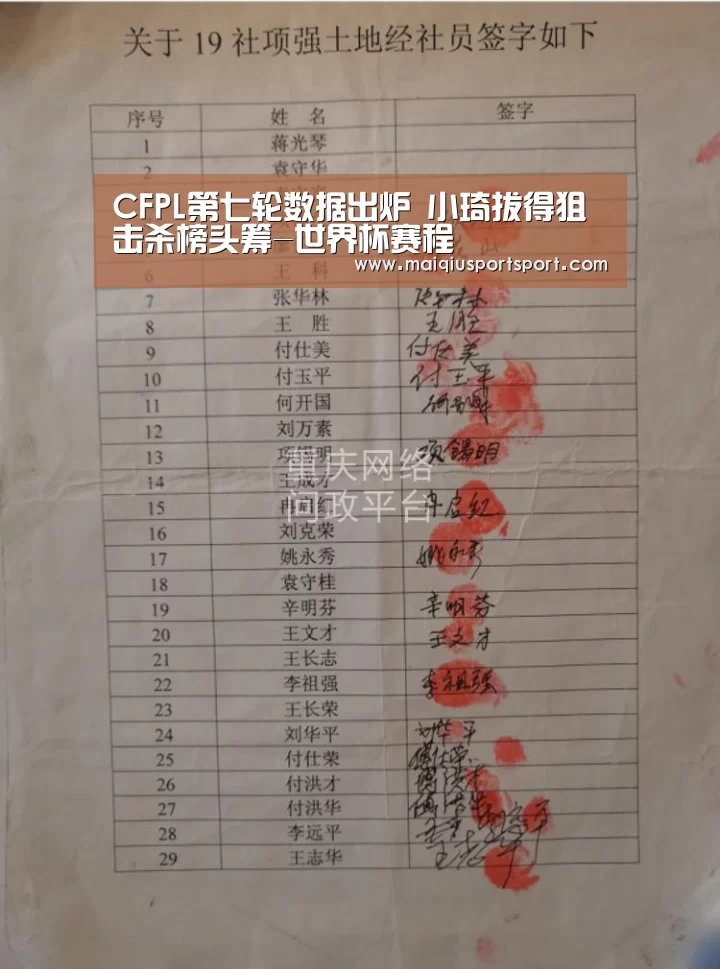 关于 19 社项强土地经社员签字如下
序号 姓 名 签字
1 蒋光琴
2 袁守华
CFPL第七轮数据出炉 小琦拔得狙
击杀榜头筹-世界杯赛程
www.maiqiusportsport.com
6 王 科
7 张华林
8 王 胜 王胜
9 付仕美 付仕美
10 付玉平 付玉平
11 何开国
12 刘万素
13 项锡明 项锡明
14 王成才
重庆网络
问政平台
15 冉启红
16 刘克荣
17 姚永秀 姚永秀
18 袁守桂
19 辛明芬 辛明芬
20 王文才 王文才
21 王长志
22 李祖强 李祖强
23 王长荣
24 刘华平 刘华平
25 付仕荣
26 付洪才
27 付洪华
28 李远平
29 王志华